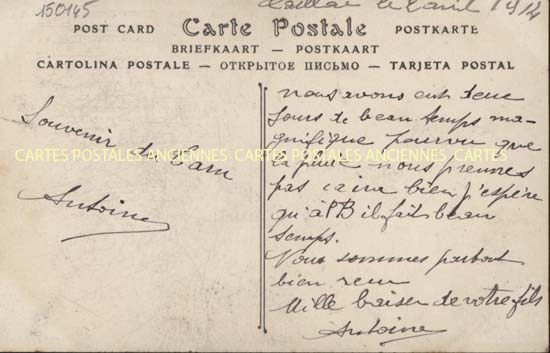 150145
Gaillac le 2 avril 1914
POST CARD Carte Postale POSTKARTE
BRIEFKAART — POSTKAART
CARTOLINA POSTALE — ОТКРЫТОЕ ПИСЬМО — TARJETA POSTAL
Souvenir
du Tarn
Antoine
nous avons eut deux
Jours de beau temps ma-
gnifique pourvu que
la pluie nous prennes
pas ca ira bien j'espère
qu'à PB il fait beau
temps.
Nous sommes partout
bien reçu
Mille baiser de votre fils
Antoine
CARTES POSTALES ANCIENNES CARTES POSTALES ANCIENNES CARTES